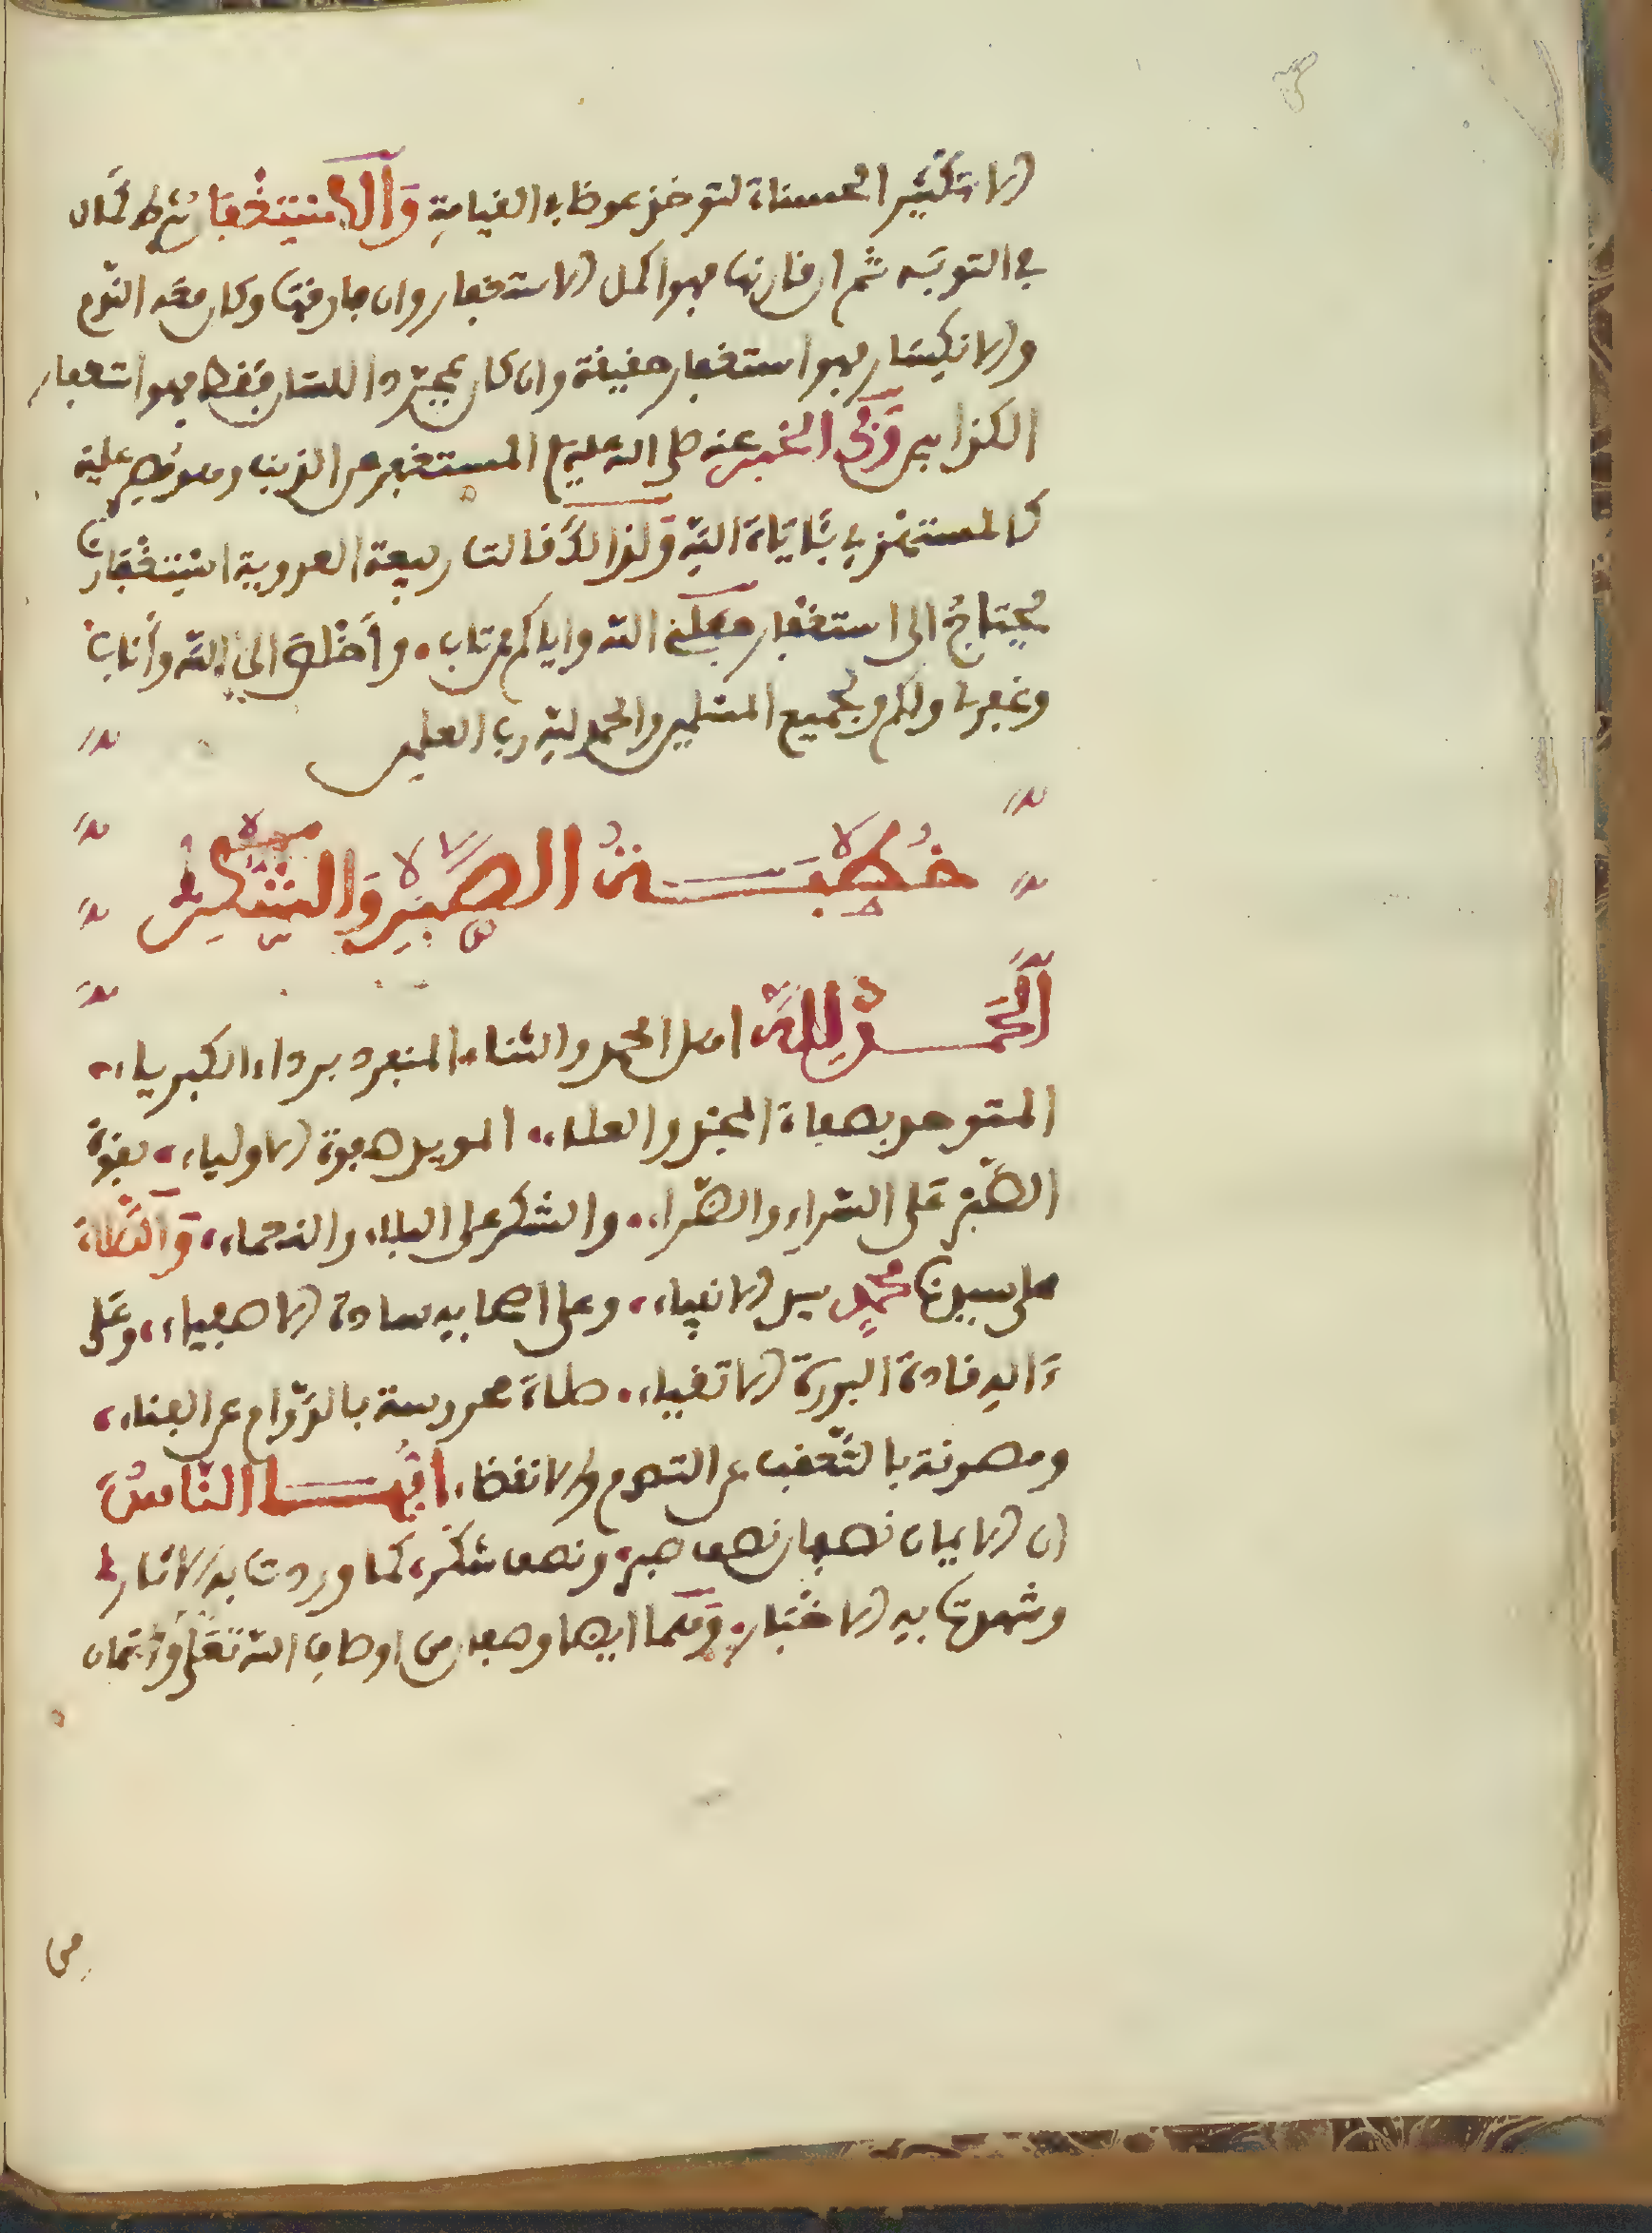 الا تكثير الحسنات لتوخذ عوضا في القيامة وَالاسْتِغْفَار شرط كمال
في التوبة ثم ان قارنها فهو اكمل الاستغفار وان فارقها وكان معه الندم
والانكسار فهو استغفار حقيقة وان كان بمجرد اللسان فقط فهو استغفار
الكذابين وَفي الخبر عنه صلى الله عليه المستغفر من الذنب وهو مصر عليه
كالمستهزي بئايات الله وَلذالك قالت ربيعة العدوية استغفارنا
يحتاج الى استغفار جعلني الله واياكم ممن تاب. وأخلص الى الله وأناب
وغفر لنا ولكم ولجميع المسلمين والحمد لله رب العلمين
خُطْبَةُ الصَّبْرِ وَالشُّكْرِ
اَلْحَمْدُ لِلهِ اهل الحمد والثناء. المنفرد برداء الكبرياء.
المتوحد بصفات المجد والعلاء. المويد صفوة الاولياء. بقوة
الصبر على السراء والضراء. والشكر على البلاء والنعماء. وَالصَّلاة
على سيدنا محمد سيد الانبياء. وعلى اصحابه سادة الاصفياء. وعلى
ءاله قادة البررة الاتقياء. صلاة محروسة بالدوام عن الفناء.
ومصونة بالتعقب عن التصرم والانقضاء. اَيُّهَا النَّاسُ
ان الايمان نصفان نصف صبر. ونصف شكر. كما وردت به الاثار
وشهدت به الاخبار. وَهما ايضا وصفان من اوصاف الله تعلى واسمان
من